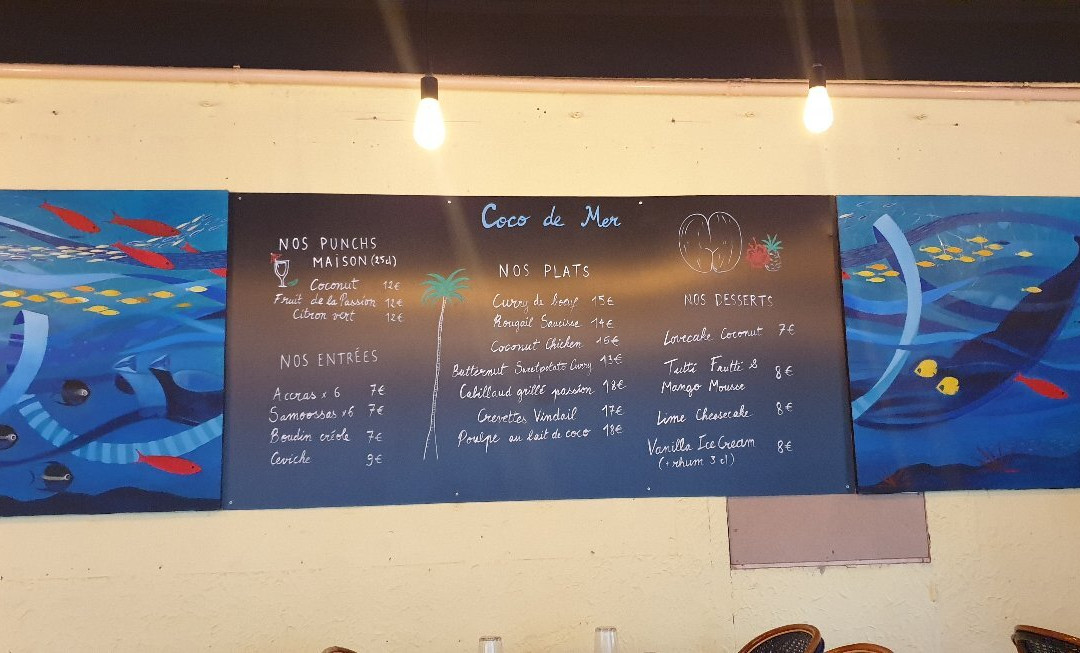 Coco de Mer
NOS PUNCHS
MAISON (25cl)
Coconut 12€
Fruit de la Passion 12€
Citron vert 12€
NOS ENTRÉES
Accras x 6 7€
Samoossas x6 7€
Boudin créole 7€
Ceviche 9€
NOS PLATS
Curry de 15€
Rougail Saucisse 14€
Coconut Chicken 15€
Butternut Sweetpotato Curry 13€
Cabillaud grillé passion 18€
Crevettes Vindail 17€
Poulpe au lait de coco 18€
NOS DESSERTS
Lovecake Coconut 7€
Tutti Frutti &
Mango Mousse 8€
Lime Cheesecake 8€
Vanilla Ice Cream 8€
(+ rhum 3 cl)